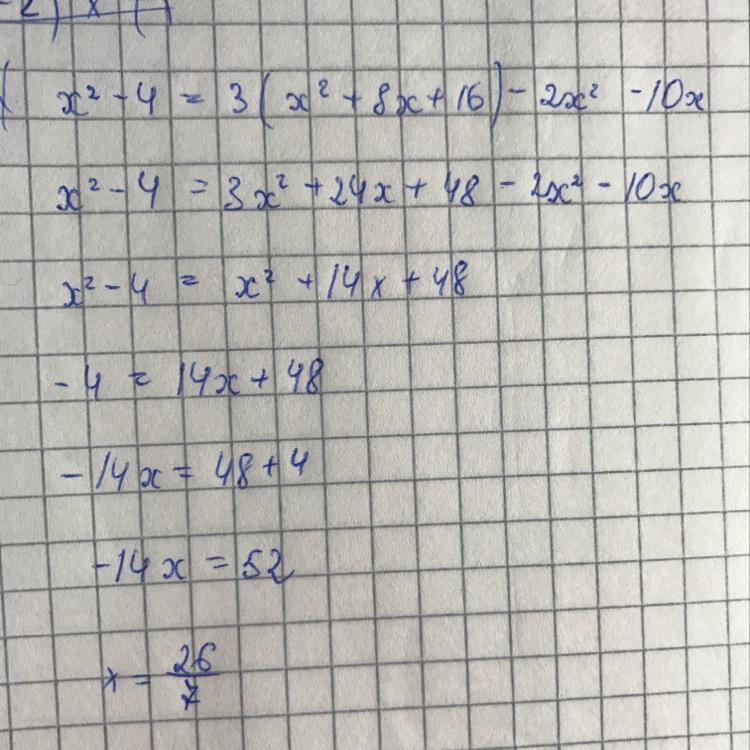 x² - 4 = 3(x² + 8x + 16) - 2x² - 10x
x² - 4 = 3x² + 24x + 48 - 2x² - 10x
x² - 4 = x² + 14x + 48
-4 = 14x + 48
-14x = 48 + 4
-14x = 52
x = 26/7